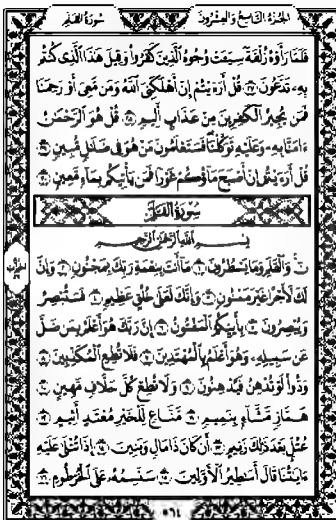 سورة القلم
الجزء التاسع والعشرون
فلما رأوه زلفة سيئت وجوه الذين كفروا وقيل هذا الذي كنتم
به تدعون ٢٧ قل أرءيتم إن أهلكني الله ومن معي أو رحمنا
فمن يجير الكفرين من عذاب أليم ٢٨ قل هو الرحمن
ءامنا به وعليه توكلنا فستعلمون من هو في ضلل مبين ٢٩
قل أرءيتم إن أصبح ماؤكم غورا فمن يأتيكم بماء معين ٣٠
سورة القلم
بسم الله الرحمن الرحيم
ن والقلم وما يسطرون ١ ما أنت بنعمة ربك بمجنون ٢ وإن
لك لأجرا غير ممنون ٣ وإنك لعلى خلق عظيم ٤ فستبصر
ويبصرون ٥ بأييكم المفتون ٦ إن ربك هو أعلم بمن ضل
عن سبيله وهو أعلم بالمهتدين ٧ فلا تطع المكذبين ٨
ودوا لو تدهن فيدهنون ٩ ولا تطع كل حلاف مهين ١٠
هماز مشاء بنميم ١١ مناع للخير معتد أثيم ١٢
عتل بعد ذلك زنيم ١٣ أن كان ذا مال وبنين ١٤ إذا تتلى عليه
ءايتنا قال أسطير الأولين ١٥ سنسمه على الخرطوم ١٦
٥٦٤